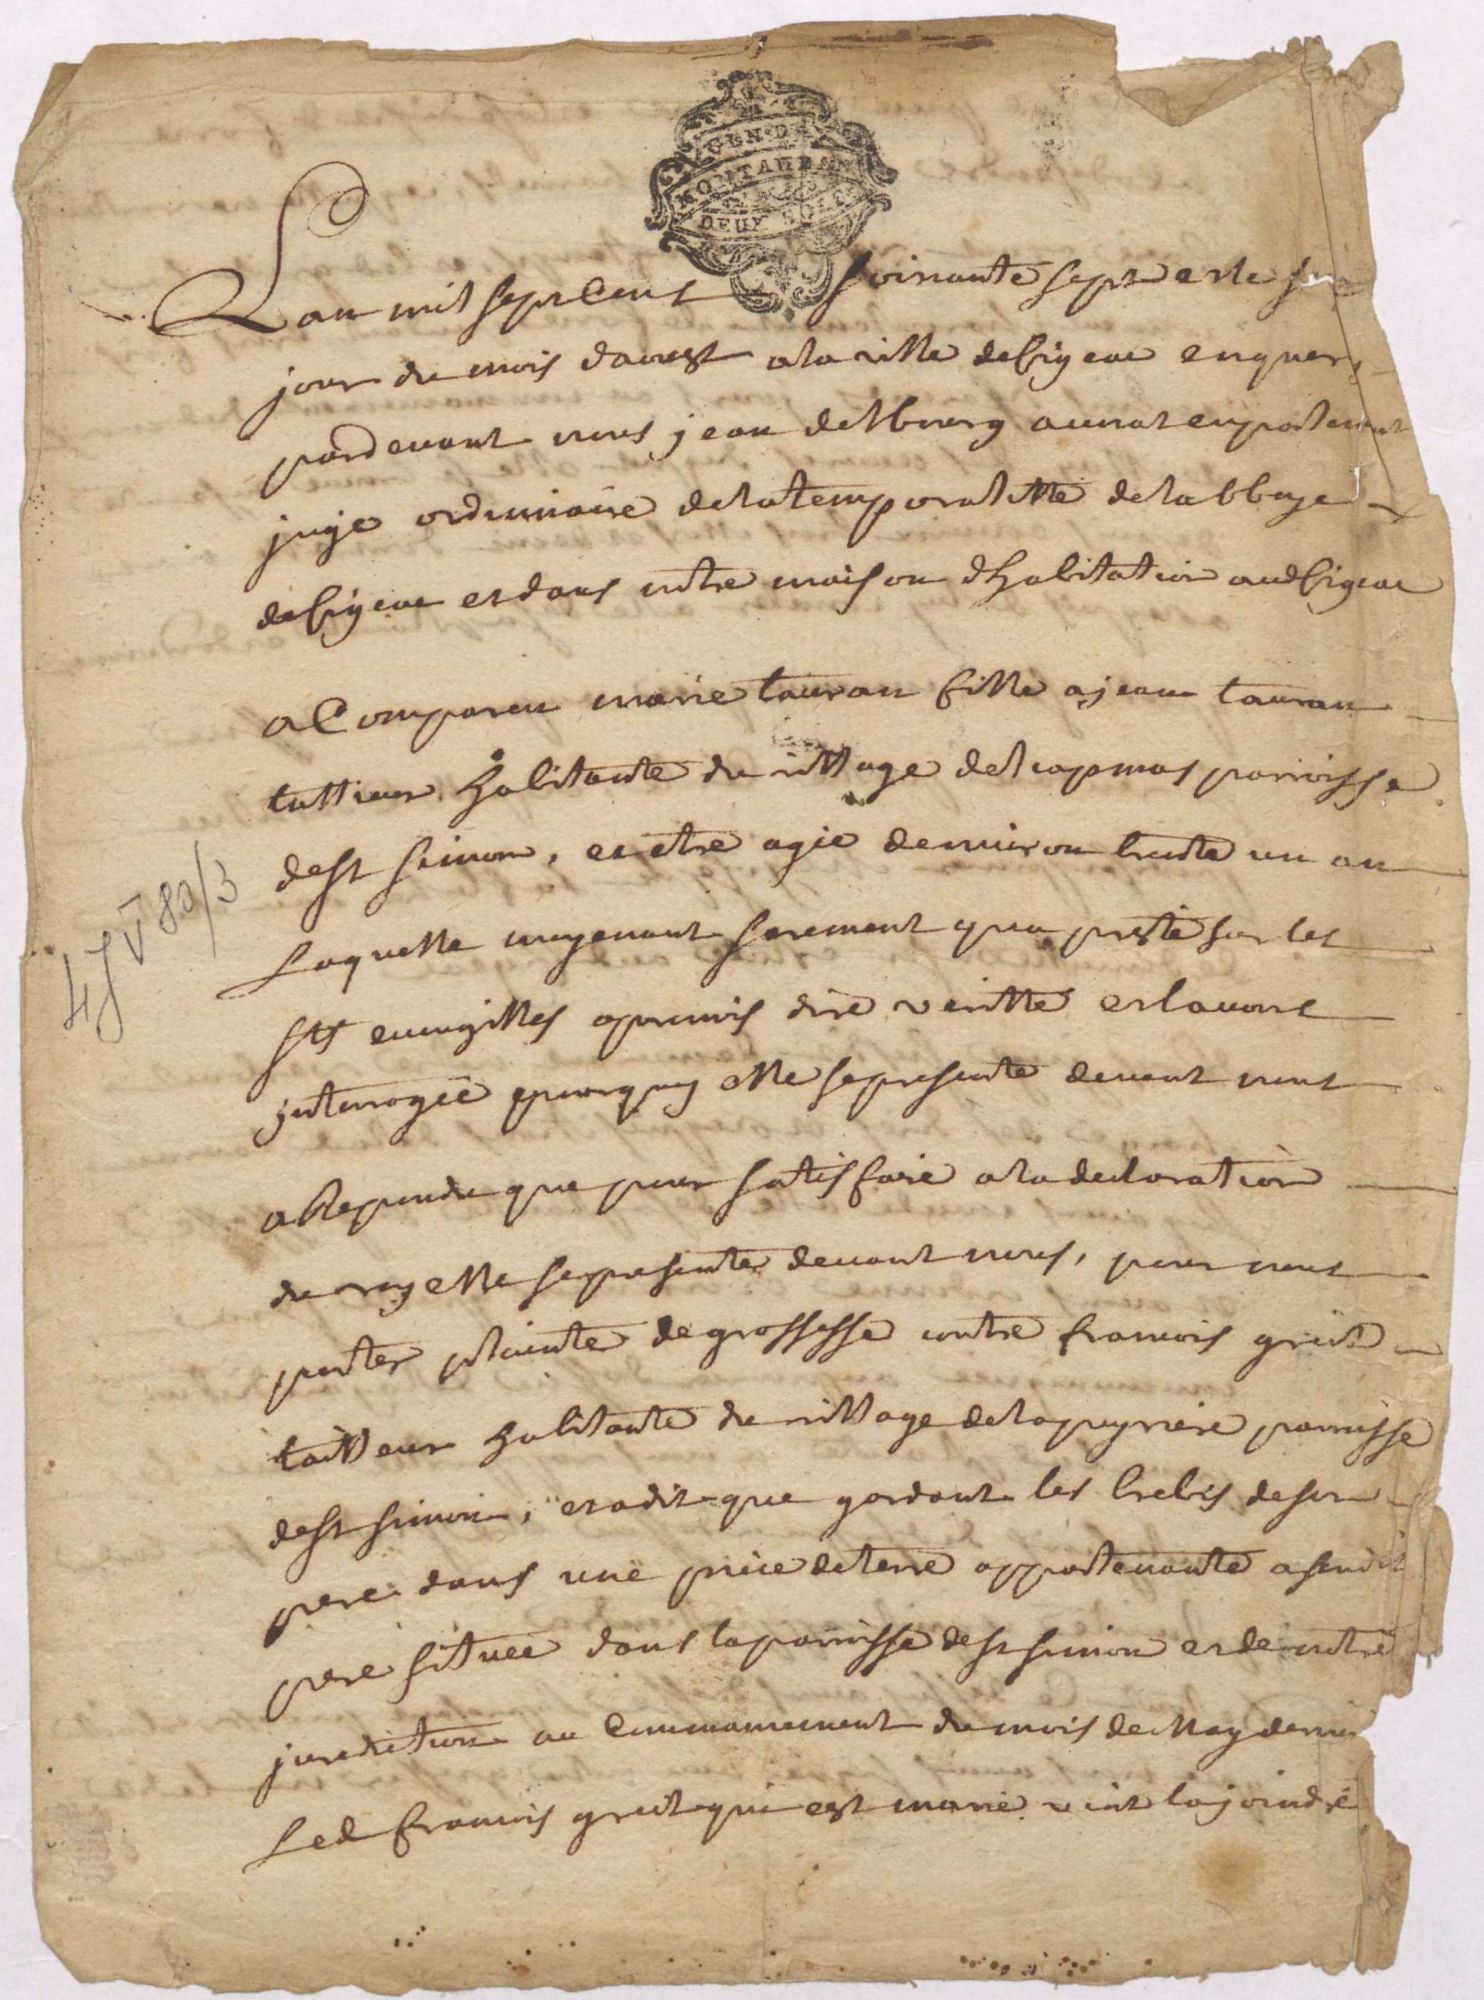 GEN. DE
MONTAUBAN
DEUX SOLS
Lan mil sept cens soixante sept et le
jour du mois daoust a la ville de figeac en quercy
pardevant nous jean delbourg avocat en parlement
juge ordinaire de la temporalitté de labbaye
de figeac et dans notre maison dhabitation aud figeac
a comparu marie tauran fille a jean tauran
tallieur habitante du village delcapmas parroisse
de st simon, et etre agée denviron trente un an
Laquelle moyenant serement qua presté sur les
sts evangilles a promis dire veritté et lavons
jnterrogée pourquoy elle se presente devent nous
a Repondu que pour satisfaire a la declaration
du roy elle se presente devant nous, pour nous
porter plainte de grossesse contre francois griat
tailleur habitante du village de lapuyriere parroisse
de st simon, et a dit que gardant les brebis de son
pere dans une piece de terre appartenante a sondit
pere située dans la parroisse de st simon et de notre
juridiction au commancement du mois de May dernier
Led francois griat qui est marié vint la joindre
4J V 80/3